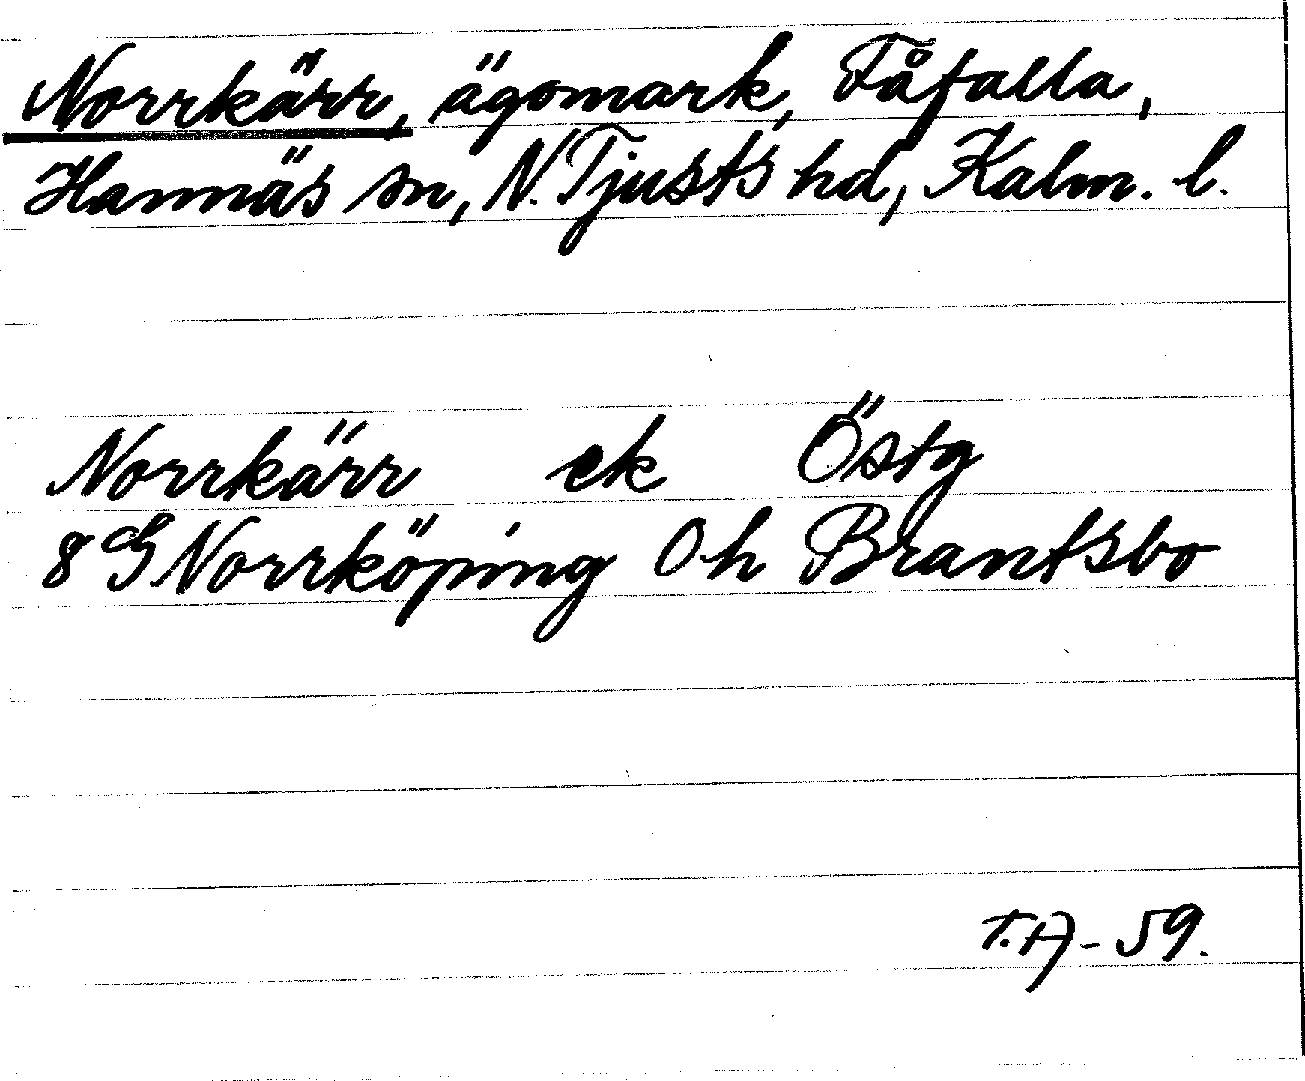 Norrkärr, ägomark, Fåfalla,
Hannäs sn, N. Tjusts hd, Kalm. l.
Norrkärr ek Östg
8 G Norrköping Oh Brantsbo
T.A-59.